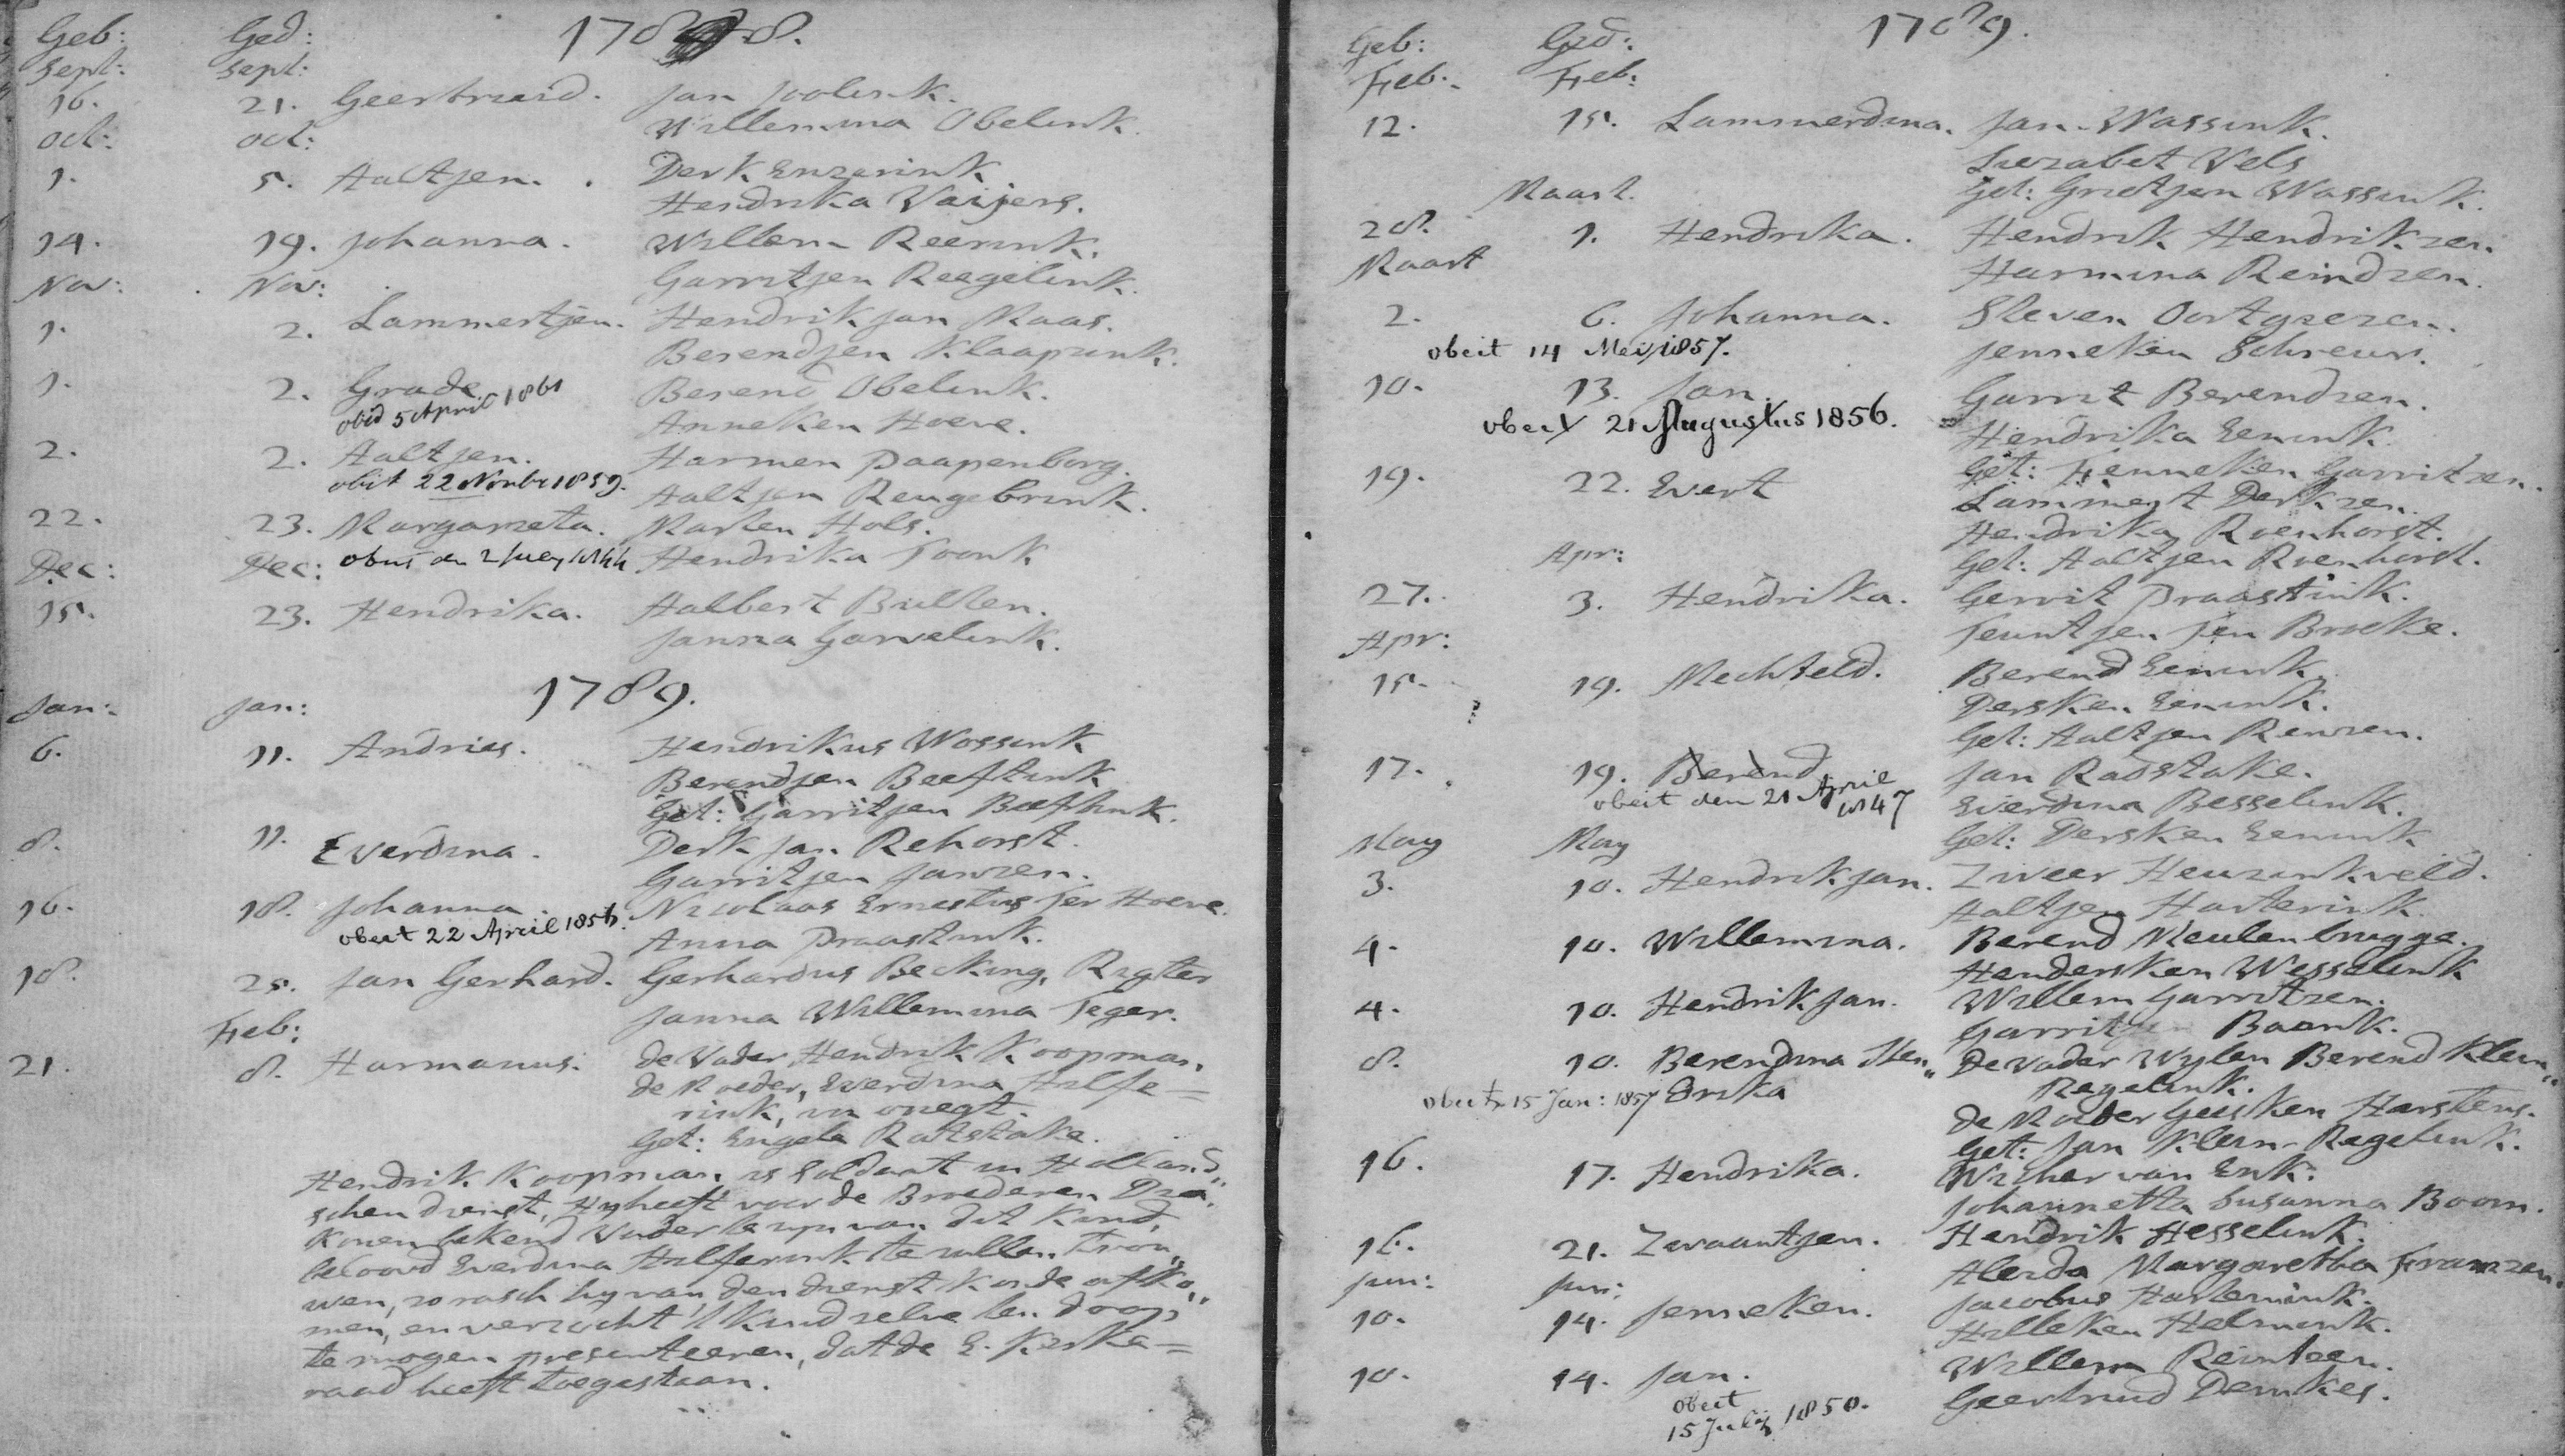 1788.
Geb: Ged:
Sept: Sept:
16. 21. Geertruid. Jan Joolink.
Willemina Obelink.
Oct: Oct:
1. 5. Aaltjen. Derk Enzerink
Hendrika Waijers.
14. 19. Johanna. Willem Reerink.
Garritjen Reegelink.
Nov: Nov:
1. 2. Lammertjen. Hendrik Jan Maas.
Berendjen Klaapzink.
1. 2. Grade. Berend Obelink.
obid 5 April 1861 Anneken Hoeve.
2. 2. Aaltjen. Harmen Paapenborg.
obit 22 Novbr 1859. Aaltjen Reugebrink.
22. 23. Margareta. Marten Hols.
obiit den 2 1844 Hendrika Toonk
Dec: Dec:
15. 23. Hendrika. Halbert Bulten.
Janna Garvelink.
1789.
Jan: Jan:
6. 11. Andries. Hendrikus Wossink
Berendjen Beeftink
Get: Garritjen Beeftink.
8. 11. Everdina. Derk Jan Rehorst.
Garritjen Janzen.
16. 18. Johanna. Nicolaas Ernestus Ter Hoeve.
obeit 22 April 1856. Anna Praastink.
18. 25. Jan Gerhard. Gerhardus Becking, Rigter
Janna Willemina Teger.
Feb:
21. 8. Harmanus. de Vader Hendrik Koopman,
de Moeder, Everdina Hulfe=
rink, in onegt.
Get: Engela Ratstake.
Hendrik Koopman is Soldaat in Holland„
schen dienst, Hy heeft voor de Broederen Dia„
konen bekend Vader te zyn van dit Kind,
beloovd Everdina Hulferink te zullen Trou„
wen, zo rasch hy van den dienst konde afko„
men, en verzocht 't Kind zelve ten doop
te mogen presenteeren, dat de E. Kerke=
raad heeft toegestaan.
1789.
Geb: Ged:
Feb: Feb:
12. 15. Lammerdina. Jan Wassink.
Liezabet Vels
Get: Grietjen Wassink.
Maart.
28. 1. Hendrika. Hendrik Hendrikzen.
Harmina Reindzen.
Maart
2. 6. Johanna. Steven Oortgiezen.
obeit 14 Mei 1857. Jenneken Schreur.
10. 13. Jan. Garrit Berendzen.
obeit 21 Augustus 1856. Hendrika Eenink.
Get: Fenneken Garritzen.
19. 22. Evert Lammert Derkzen.
Hendrika Roenhorst.
Get: Aaltjen Roenhorst.
Apr:
27. 3. Hendrika. Gerrit Praastink.
Teuntjen Ten Broeke.
Apr:
15. 19. Mechteld. Berend Eenink.
Dersken Eenink.
Get: Aaltjen Renzen.
17. 19. Berend Jan Radstake.
obeit den 21 April 1847 Everdina Besselink.
Get: Dersken Eenink
May May
3. 10. Hendrik Jan. Zweer Heuzinkveld.
Aaltjen Harterink.
4. 10. Willemina. Berend Meulenbrugge.
Hendersken Wesselink
4. 10. Hendrik Jan. Willem Garritzen.
Garritjen Baank.
8. 10. Berendina Hen„ de Vader Wylen Berend Klein„
obeit 15 Jan: 1857 drika Regelink.
de Moeder Geesken Harstens.
Get: Jan Klein Regelink.
16. 17. Hendrika. Wicher van Enk.
Johannetta Susanna Boom.
16. 21. Zwaantjen. Hendrik Hesselink.
Aleida Margaretha Franzen.
Jun: Jun:
10. 14. Jenneken. Jacobus Harterink.
Hilleken Helmink.
10. 14. Jan. Willem Reintzen.
obeit Geertruid Demkes.
15 Julij 1850.